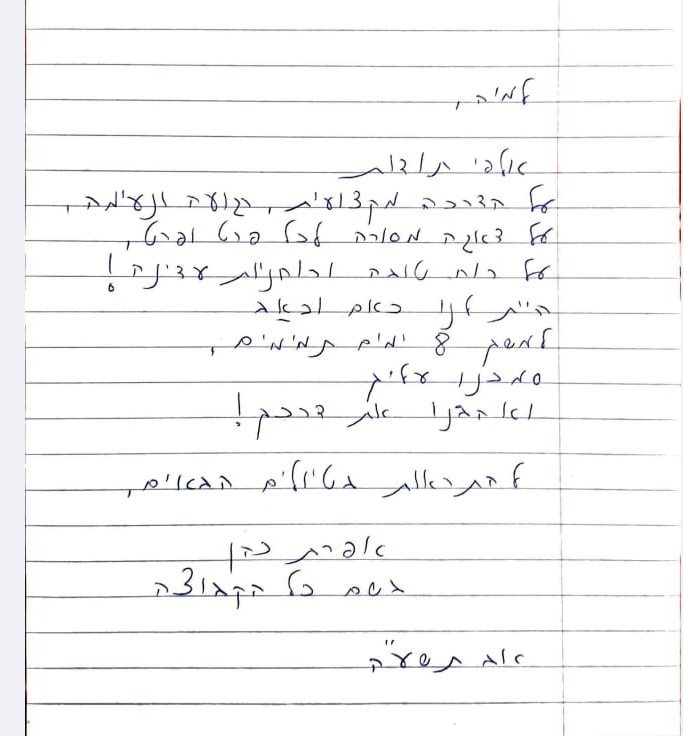 למיה,
אלפי תודות
על הדרכה מקצועית, רגועה ונעימה,
על דאגה מסורה לכל פרט ופרט,
על רוח טובה ורוחניות עדינה!
היית לנו כאם וכאב
למשך 8 ימים תמימים,
סמכנו עליך
ואהבנו את דרכך!
להתראות בטיולים הבאים,
אפרת כהן
בשם כל הקבוצה
אוג תשע"ה